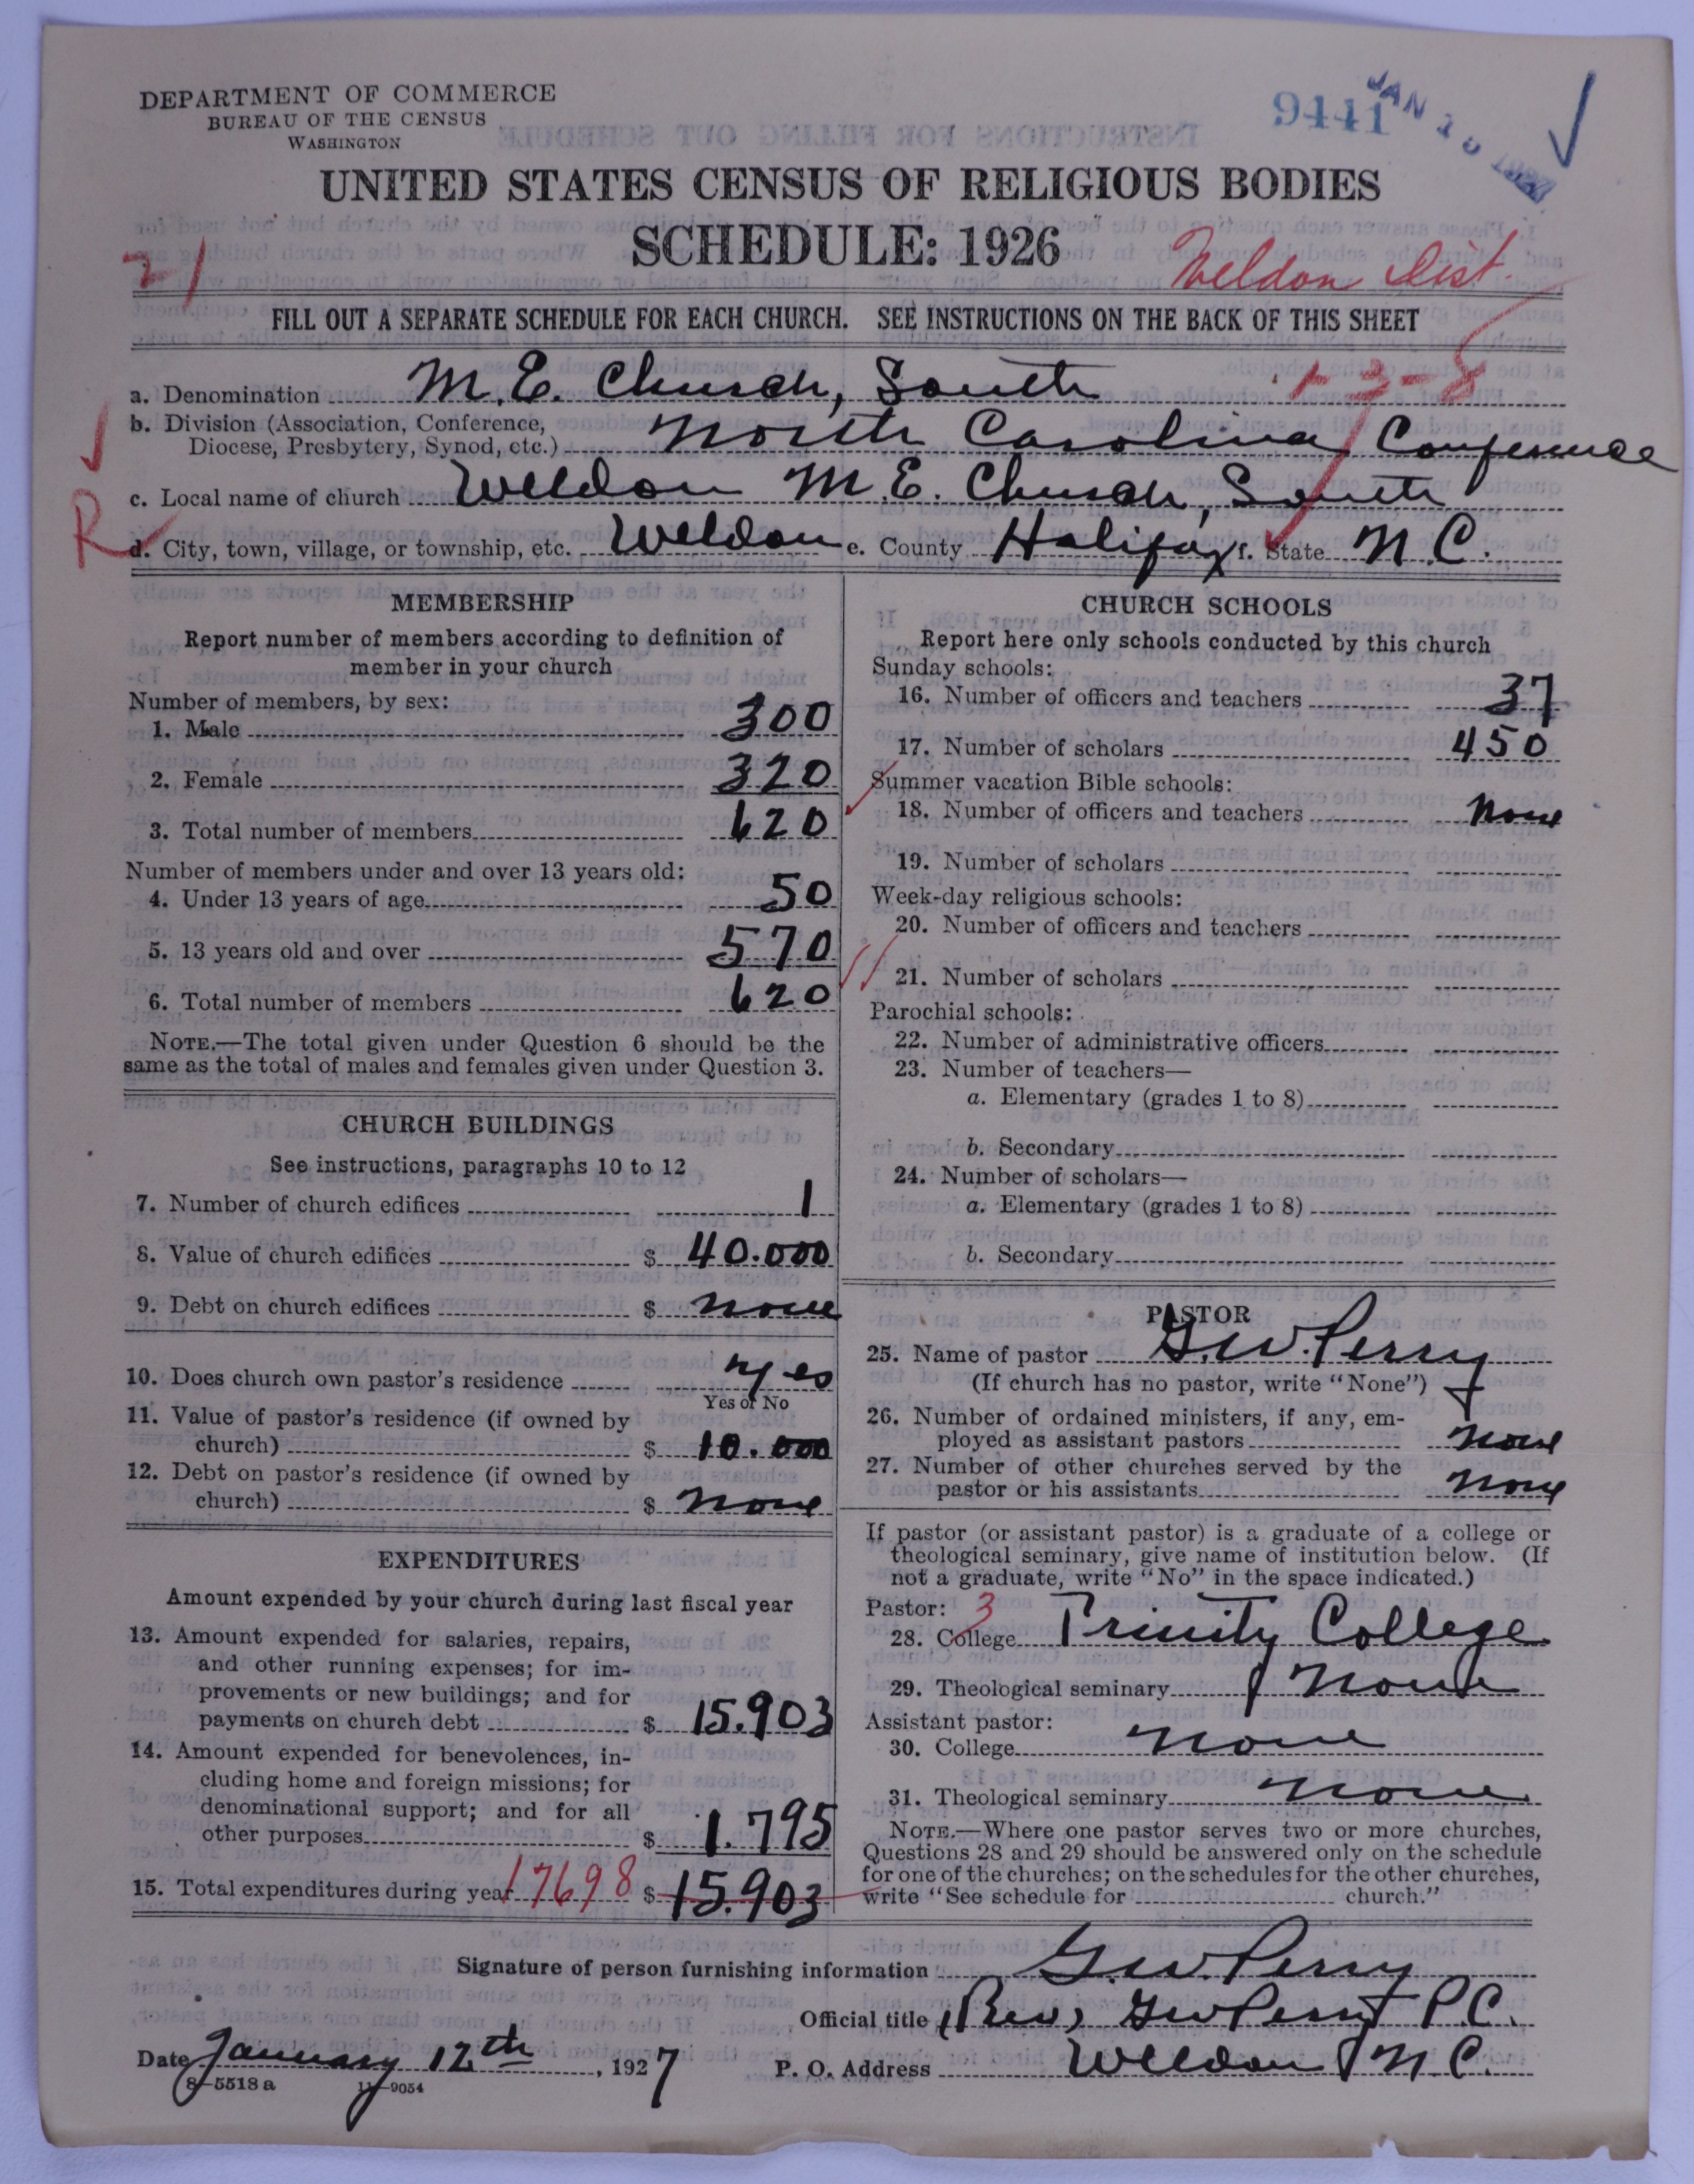 DEPARTMENT OF COMMERCE
BUREAU OF THE CENSUS
WASHINGTON
9441
JAN 1
UNITED STATES CENSUS OF RELIGIOUS BODIES
SCHEDULE: 1926
21
Weldon Dist.
FILL OUT A SEPARATE SCHEDULE FOR EACH CHURCH. SEE INSTRUCTIONS ON THE BACK OF THIS SHEET
1-3-8
a. Denomination M.E. Church, South
b. Division (Association, Conference,
Diocese, Presbytery, Synod, etc.) North Carolina Conference
c. Local name of church Weldon M.E. Church, South
R
d. City, town, village, or township, etc. Weldon e. County Halifax f. State N.C.
MEMBERSHIP
Report number of members according to definition of
member in your church
Number of members, by sex:
1. Male 300
2. Female 320
3. Total number of members 620
Number of members under and over 13 years old:
4. Under 13 years of age 50
5. 13 years old and over 570
6. Total number of members 620
NOTE.—The total given under Question 6 should be the
same as the total of males and females given under Question 3.
CHURCH BUILDINGS
See instructions, paragraphs 10 to 12
7. Number of church edifices 1
8. Value of church edifices $ 40.000
9. Debt on church edifices $ none
10. Does church own pastor's residence yes
Yes or No
11. Value of pastor's residence (if owned by
church) $ 10.000
12. Debt on pastor's residence (if owned by
church) $ none
EXPENDITURES
Amount expended by your church during last fiscal year
13. Amount expended for salaries, repairs,
and other running expenses; for im-
provements or new buildings; and for
payments on church debt $ 15.903
14. Amount expended for benevolences, in-
cluding home and foreign missions; for
denominational support; and for all
other purposes $ 1.795
15. Total expenditures during year 17698 $ 15.903
CHURCH SCHOOLS
Report here only schools conducted by this church
Sunday schools:
16. Number of officers and teachers 37
17. Number of scholars 450
Summer vacation Bible schools:
18. Number of officers and teachers none
19. Number of scholars
Week-day religious schools:
20. Number of officers and teachers
21. Number of scholars
Parochial schools:
22. Number of administrative officers
23. Number of teachers—
a. Elementary (grades 1 to 8)
b. Secondary
24. Number of scholars—
a. Elementary (grades 1 to 8)
b. Secondary
PASTOR
25. Name of pastor G.W. Perry
(If church has no pastor, write "None")
26. Number of ordained ministers, if any, em-
ployed as assistant pastors none
27. Number of other churches served by the
pastor or his assistants none
If pastor (or assistant pastor) is a graduate of a college or
theological seminary, give name of institution below. (If
not a graduate, write "No" in the space indicated.)
Pastor: 3
28. College Trinity College
29. Theological seminary none
Assistant pastor:
30. College none
31. Theological seminary none
NOTE.—Where one pastor serves two or more churches,
Questions 28 and 29 should be answered only on the schedule
for one of the churches; on the schedules for the other churches,
write "See schedule for church."
Signature of person furnishing information G.W. Perry
Official title (Rev) G W Perry P.C.
Date January 12th, 1927 P. O. Address Weldon N.C.
8—5518 a 11—9054